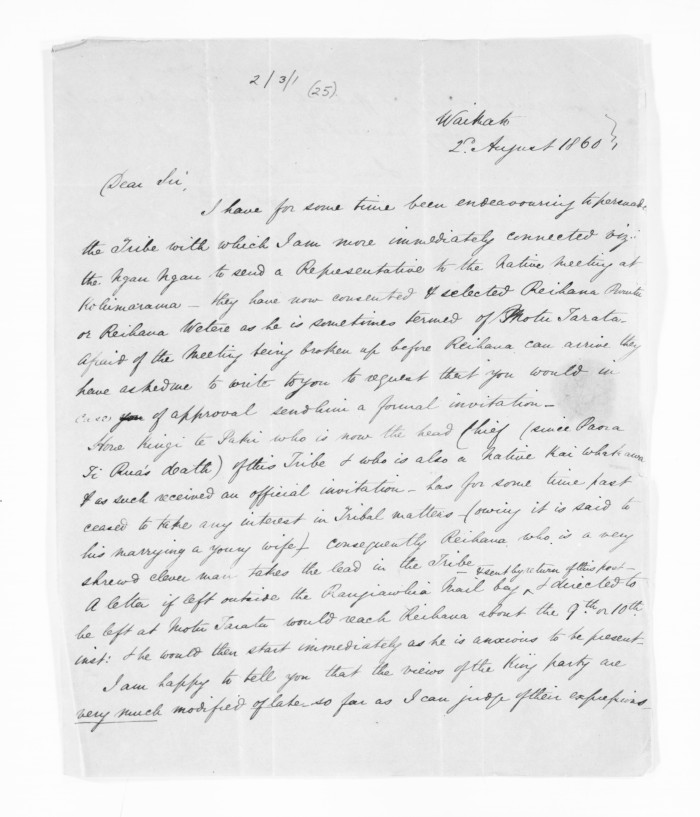 2/3/1 (25).
Waikato
2d. August 1860
Dear Sir,
I have for some time been endeavouring to persuade
the Tribe with which I am more immediately connected viz:
the Ngan Ngan to send a Representative to the Native Meeting at
Kohimarama — they have now consented & selected Reihana
or Reihana Wetere as he is sometimes termed of Motu Tarata.
Afraid of the Meeting being broken up before Reihana can arrive they
have asked me to write to you to request that you would in
case you of approval send him a formal invitation —
Hone Kingi te Patu who is now the head Chief (since Paora
Ti Rua's death) of this Tribe & who is also a Native Kai whakawa
& as such received an official invitation — has for some time past
ceased to take any interest in Tribal matters — (owing it is said to
his marrying a young wife) consequently Reihana who is a very
shrewd clever man takes the lead in the Tribe —
A letter if left outside the Rangiawhia Mail bag — & sent by return of this post — & directed to
be left at Motu Taratu would reach Reihana about the 9th or 10th
inst: & he would then start immediately as he is anxious to be present —
I am happy to tell you that the views of the King party are
very much modified of late so far as I can judge of their expressions